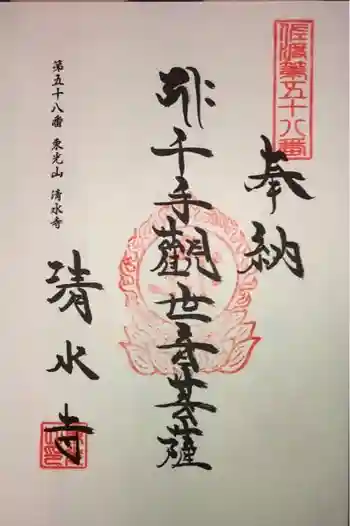 佐渡第五十八番
奉納
千手観世音菩薩
清水寺
第五十八番 東光山 清水寺